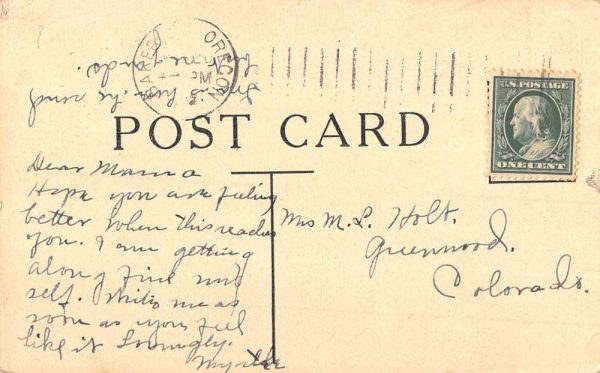 BAKER OREGON
PM
POST CARD
U.S. POSTAGE
ONE CENT
Dear Mama
Hope you are feeling
better when this reaches
you. I am getting
along fine my
self. Write me as
soon as you feel
like it Lovingly.
Myrtle
Mrs M. L. Holt.
Greenwood.
Colorado.